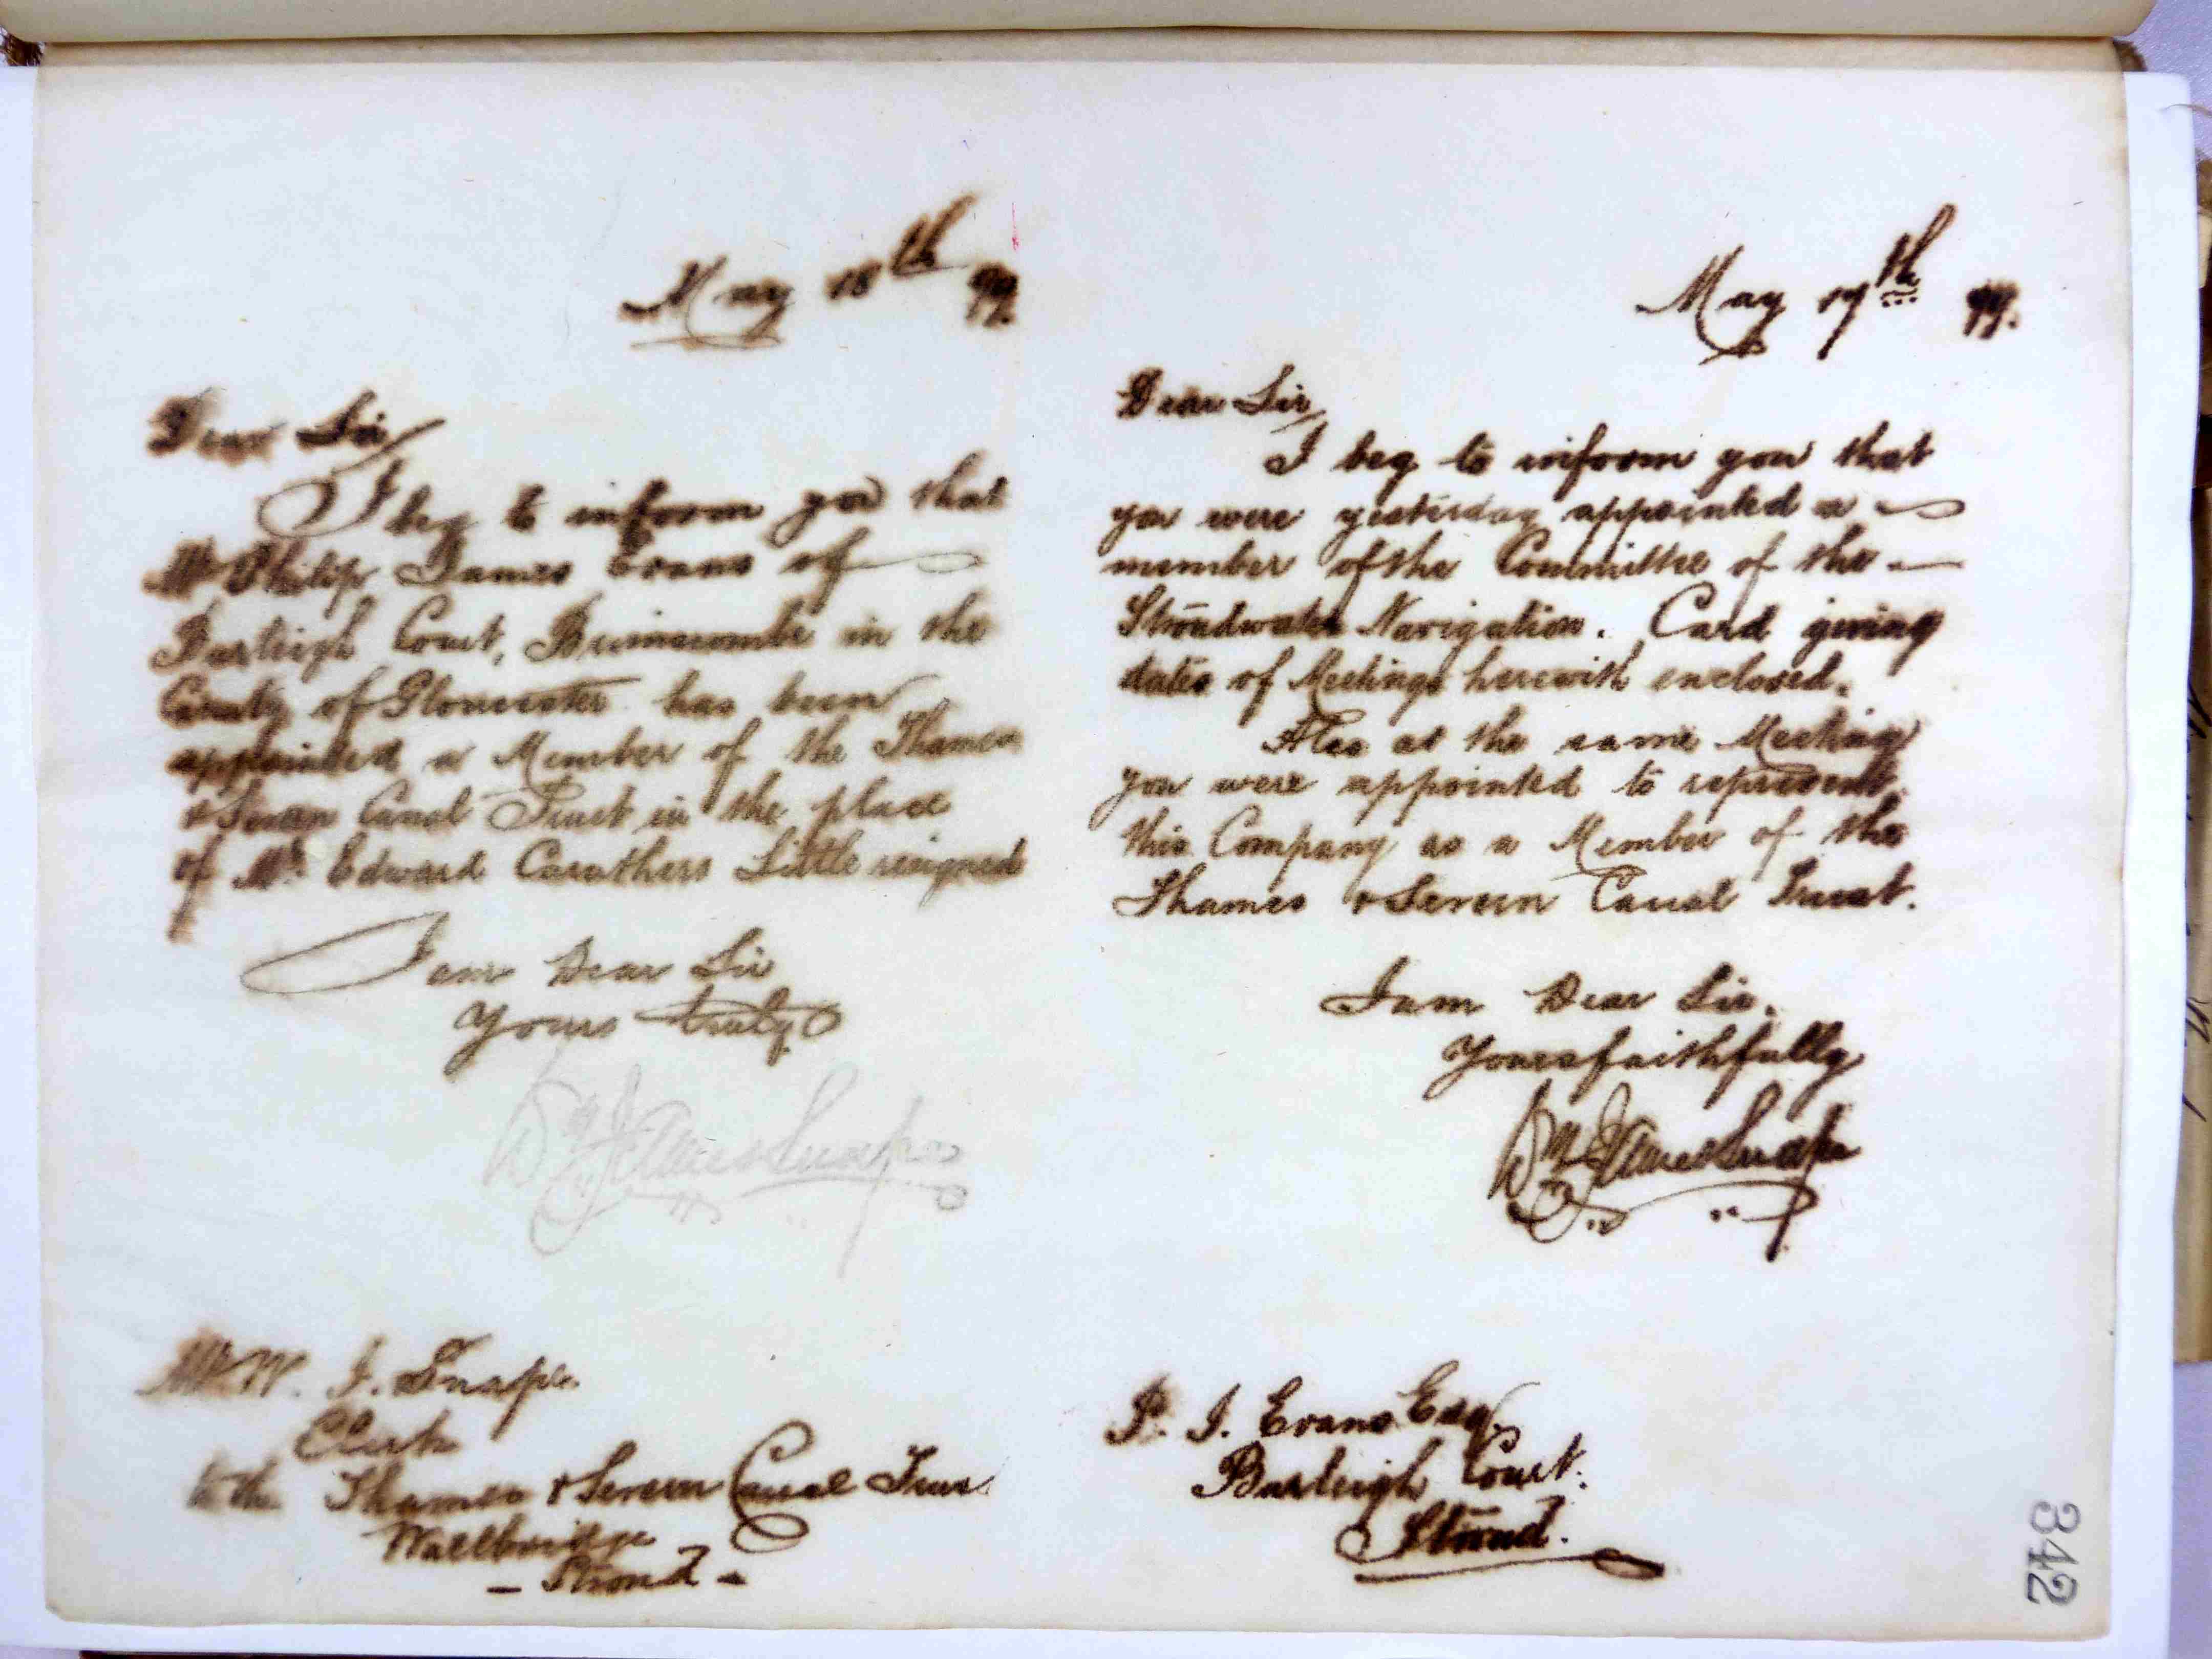 May 18th 99.
Dear Sir,
I beg to inform you that
Mr Philip James Evans of
Burleigh Court, Brimscombe in the
County of Gloucester has been
appointed a Member of the Thames
& Severn Canal Trust in the place
of Mr. Edward Caruthers Little resigned
I am Dear Sir
Yours truly
Wm James Snape
Mr W. J. Snape
Clerk
to the Thames & Severn Canal Trus
Wallbridge
- Stroud -
May 17th 99.
Dear Sir,
I beg to inform you that
you were yesterday appointed a
member of the Committee of the
Stroudwater Navigation. Card giving
dates of Meetings herewith enclosed.
Also at the same Meeting
you were appointed to represent
this Company as a Member of the
Thames & Severn Canal Trust.
I am Dear Sir.
Yours faithfully
Wm James Snape
P. J. Evans Esq.
Burleigh Court.
Stroud.
342